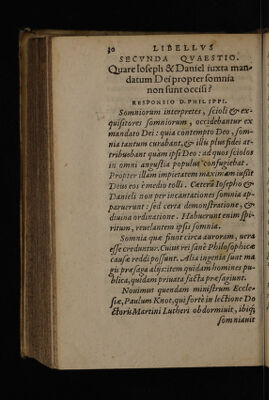 30 LIBELLVS
SECVNDA QVAESTIO.
Quare Ioseph & Daniel iuxta man-
datum Dei propter somnia
non sunt occisi?
RESPONSIO D. PHILIPPI.
Somniorum interpretes, scioli & ex-
quisitores somniorum, occidebantur ex
mandato Dei: quia contempto Deo, som-
nia tantum curabant, & illis plus fidei at-
tribuebant quàm ipsi Deo: ad quos sciolos
in omni angustia populus confugiebat.
Propter illam impietatem maximam iussit
Deus eos è medio tolli. Cæterũ Iosepho &
Danieli non per incantationes somnia ap-
paruerunt: sed certa demonstratione, &
diuina ordinatione. Habuerunt enim spi-
ritum, reuelantem ipsis somnia.
Somnia quæ fiunt circa auroram, uera
esse creduntur. Cuius rei sanè Philosophicæ
causæ reddi possunt. Alia ingenia sunt ma
gis præsaga alijs: item quidam homines pu-
blica, quidam priuata facta præsagiunt.
Nouimus quendam ministrum Eccle-
siæ, Paulum Knot, qui fortè in lectione Do
ctoris Martini Lutheri obdormiuit, ibiq;
somniauit